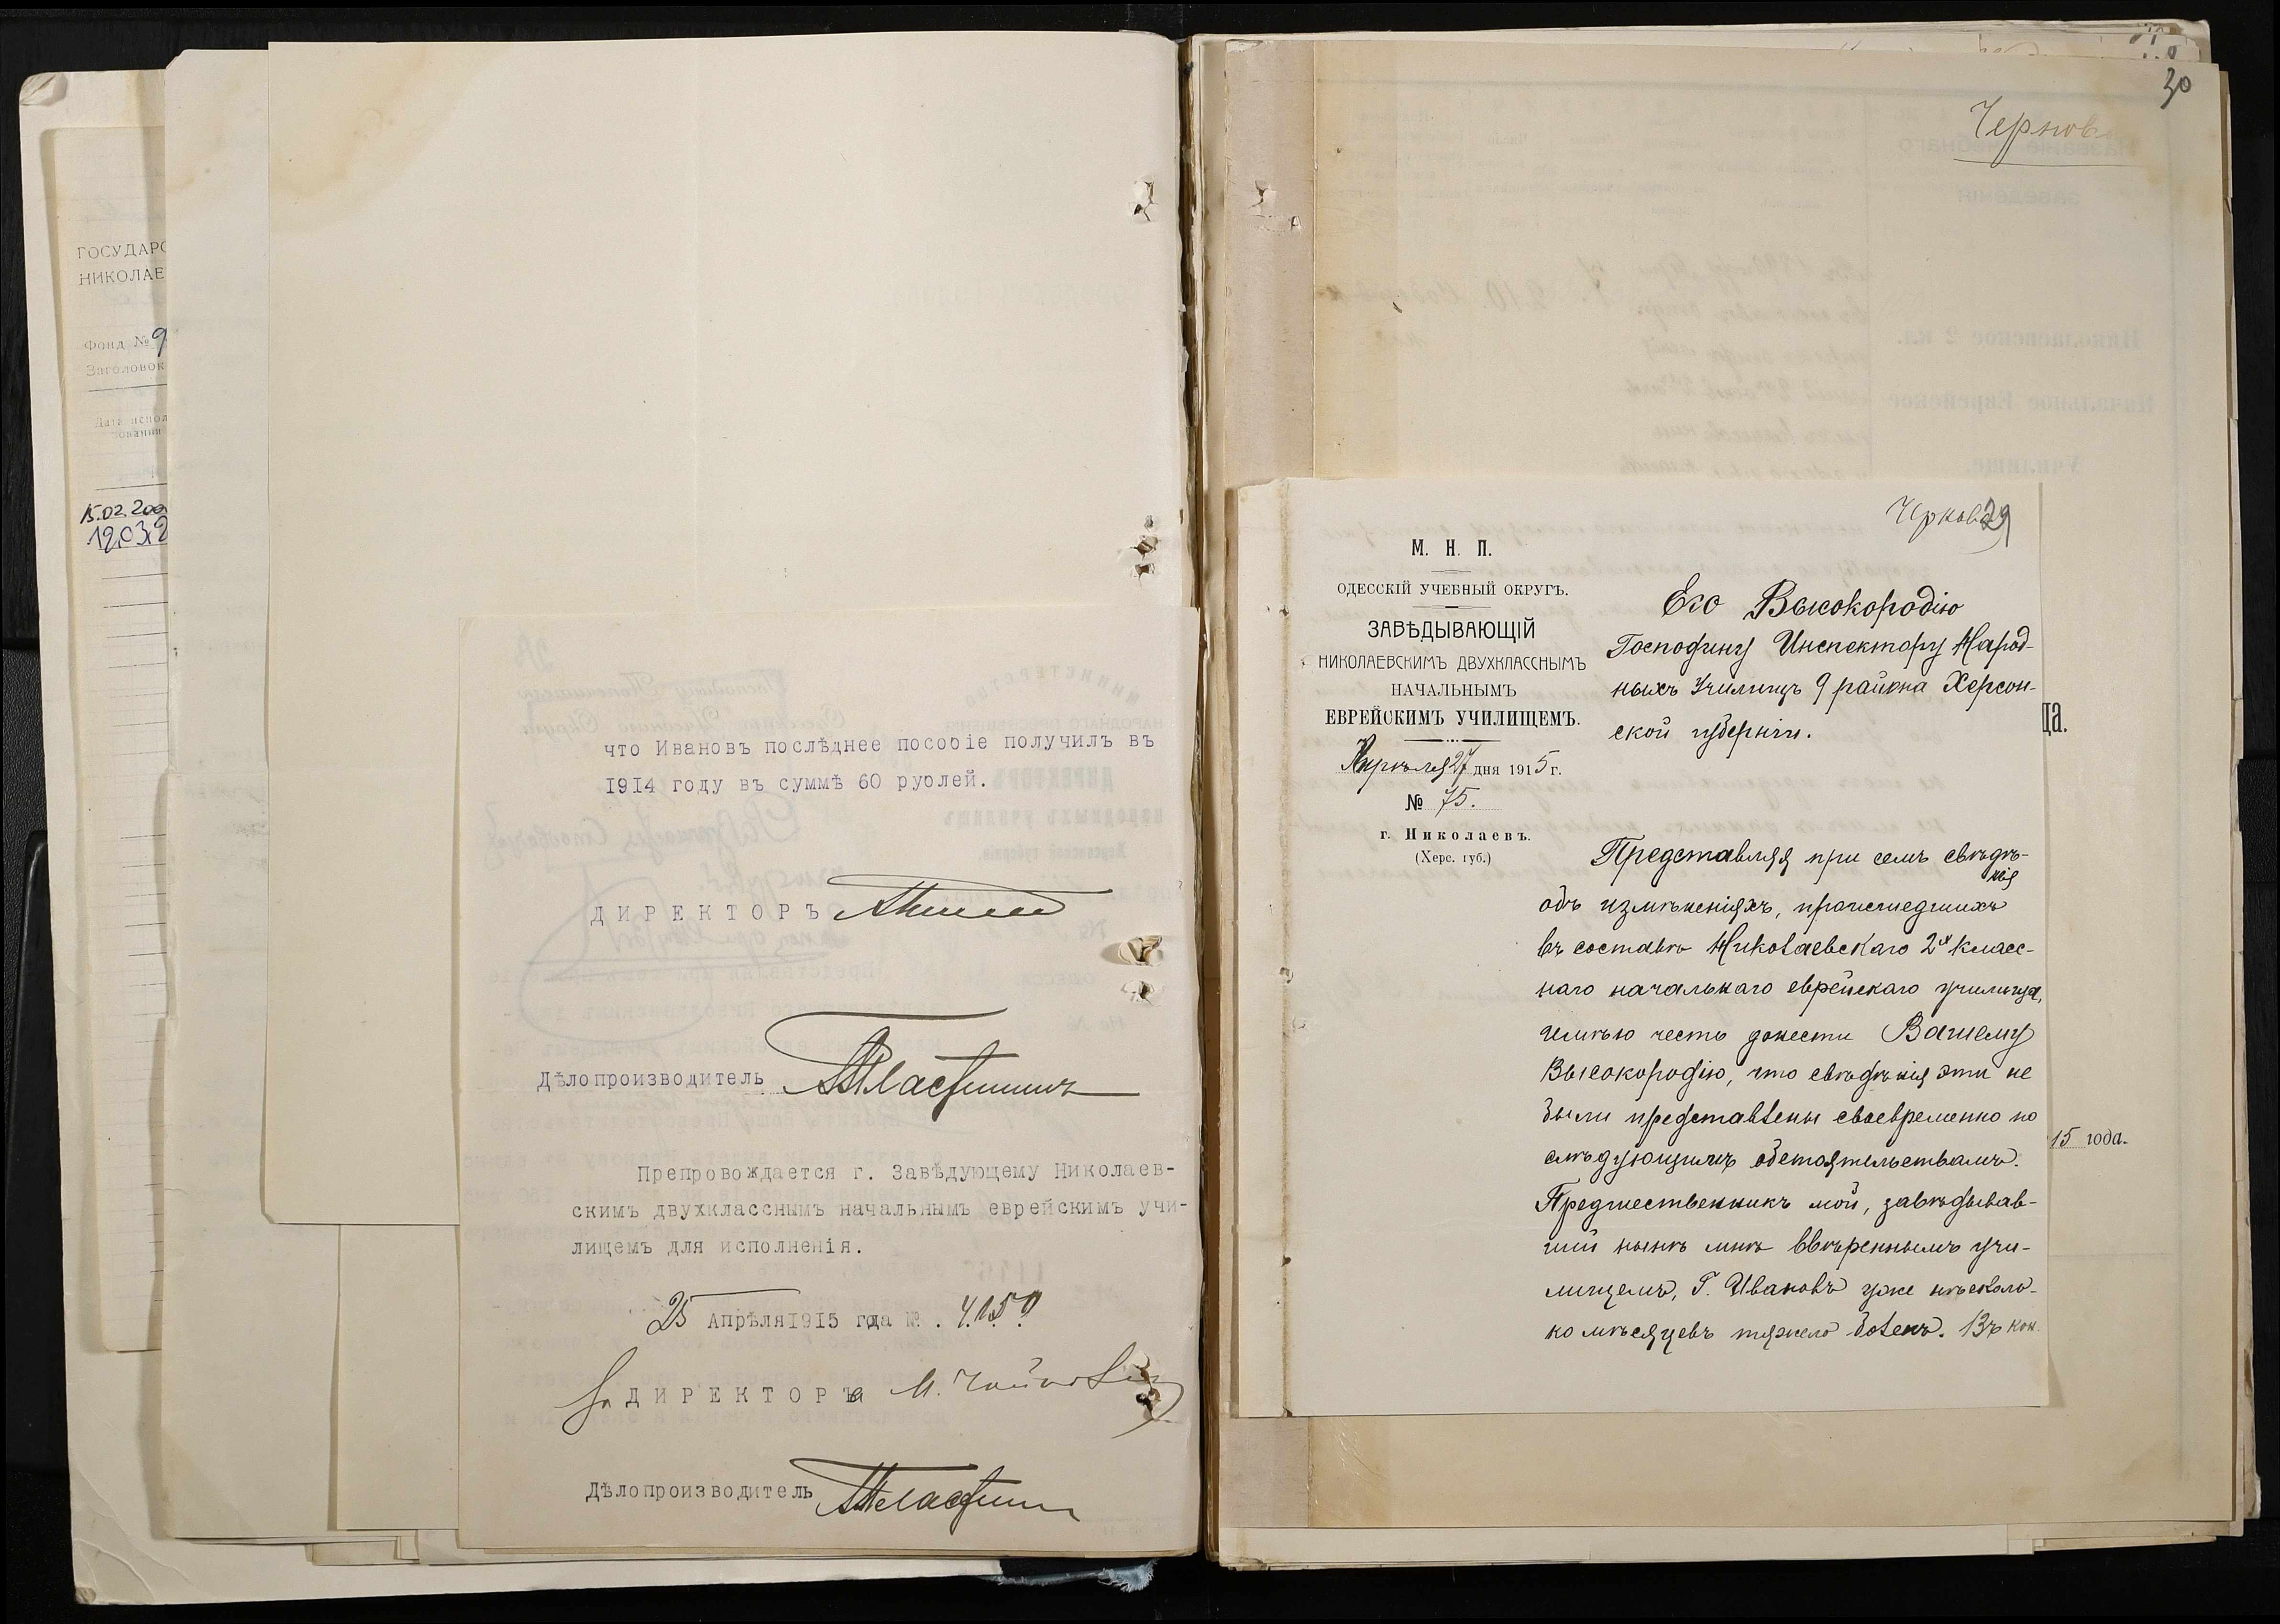 ГОСУДАРС
НИКОЛАЕ
Фонд № 9
Заголовок
15.02.200
12.03.2
что Ивановъ послѣднее пособіе получилъ въ
1914 году въ суммѣ 60 рублей.
ДИРЕКТОРЪ
Дѣлопроизводитель
Препровождается г. Завѣдующему Николаев-
скимъ двухкласснымъ начальнымъ еврейскимъ учи-
лищемъ для исполненія.
25 Апрѣля 1915 года № 4159
За ДИРЕКТОРА
Дѣлопроизводитель
30
Чернов
Чернов 29
М. Н. П.
ОДЕССКІЙ УЧЕБНЫЙ ОКРУГЪ.
ЗАВѢДЫВАЮЩІЙ
НИКОЛАЕВСКИМЪ ДВУХКЛАССНЫМЪ
НАЧАЛЬНЫМЪ
ЕВРЕЙСКИМЪ УЧИЛИЩЕМЪ.
Апрѣля 27 дня 1915 г.
№ 75.
г. Николаевъ.
(Херс. губ.)
Его Высокородію
Господину Инспектору Народ-
ныхъ Училищъ 9 района Херсон-
ской губерніи.
Представляя при семъ свѣдѣ-
нія
объ измѣненіяхъ, происшедшихъ
въ составѣ Николаевскаго 2х класс-
наго начальнаго еврейскаго училища,
имѣю честь донести Вашему
Высокородію, что свѣдѣнія эти не
были представлены своевременно по
слѣдующимъ обстоятельствамъ.
Предшественникъ мой, завѣдывав-
шій нынѣ мнѣ ввѣреннымъ учи-
лищемъ, Г. Ивановъ уже нѣсколь-
ко мѣсяцевъ тяжело боленъ. Въ кон.
ца.
15 года.